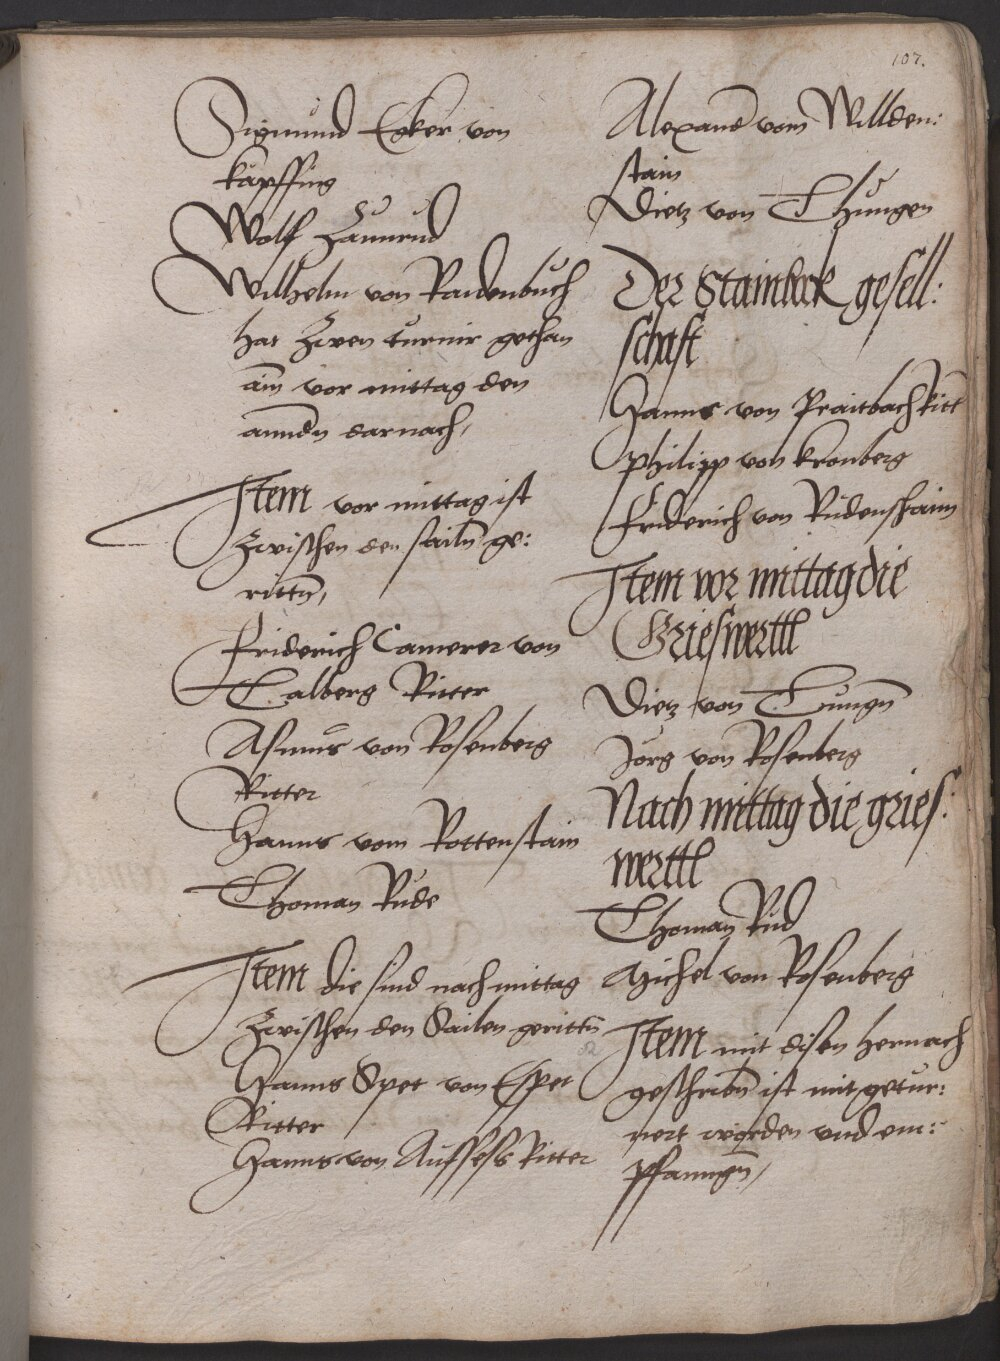 107.
Sigmund Ecker von
käpffing
Wolf Zaunrud
Wilhelm von Raidenbuch
hat Zwen turnir gethan
ain vor mittag den
anndn darnach,
Item vor mittag ist
Zwischen den sailn ge:
rittn,
Friderich Camerer von
Talberg Ritter
Asmus von Rosenberg
Ritter
Hanns vom Rottenstain
Thoman Rüde
Item die sind nach mittag
Zwischen den Sailen gerittn
Hanns Spet von Espet
Ritter
Hanns von Aufsess Ritter
Alexand vom Willden:
stain
Dietz von Thungen
Der Stainbock gesell:
schaft
Hanns von Praitbach Ritt
Philipp von kronberg
Friderich von Rüdenshaim
Item vor mittag die
Grieswerttl
Dietz von Tungn
Jorg von Rosenberg
Nach mittag die gries:
werttl
Thoman Rud
Michel von Rosenberg
Item mit disen hernach
geschribn ist mit getur:
niert worden vnd em:
pfanngn,